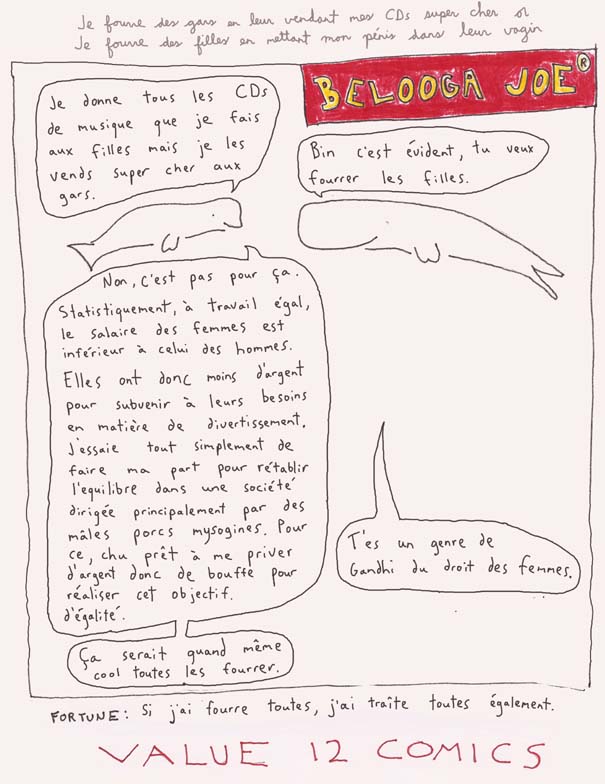 Je fourre des gars en leur vendant mes CDs super cher et
Je fourre des filles en mettant mon pénis dans leur vagin
BELOOGA JOE®
Je donne tous les CDs
de musique que je fais
aux filles mais je les
vends super cher aux
gars.
Bin c'est évident, tu veux
fourrer les filles.
Non, c'est pas pour ça.
Statistiquement, à travail égal,
le salaire des femmes est
inférieur à celui des hommes.
Elles ont donc moins d'argent
pour subvenir à leurs besoins
en matière de divertissement.
J'essaie tout simplement de
faire ma part pour rétablir
l'equilibre dans une société
dirigée principalement par des
mâles porcs mysogines. Pour
ce, chu prêt à me priver
d'argent donc de bouffe pour
réaliser cet objectif.
d'égalité.
T'es un genre de
Gandhi du droit des femmes.
Ça serait quand même
cool toutes les fourrer.
FORTUNE: Si j'ai fourre toutes, j'ai traîte toutes également.
VALUE 12 COMICS